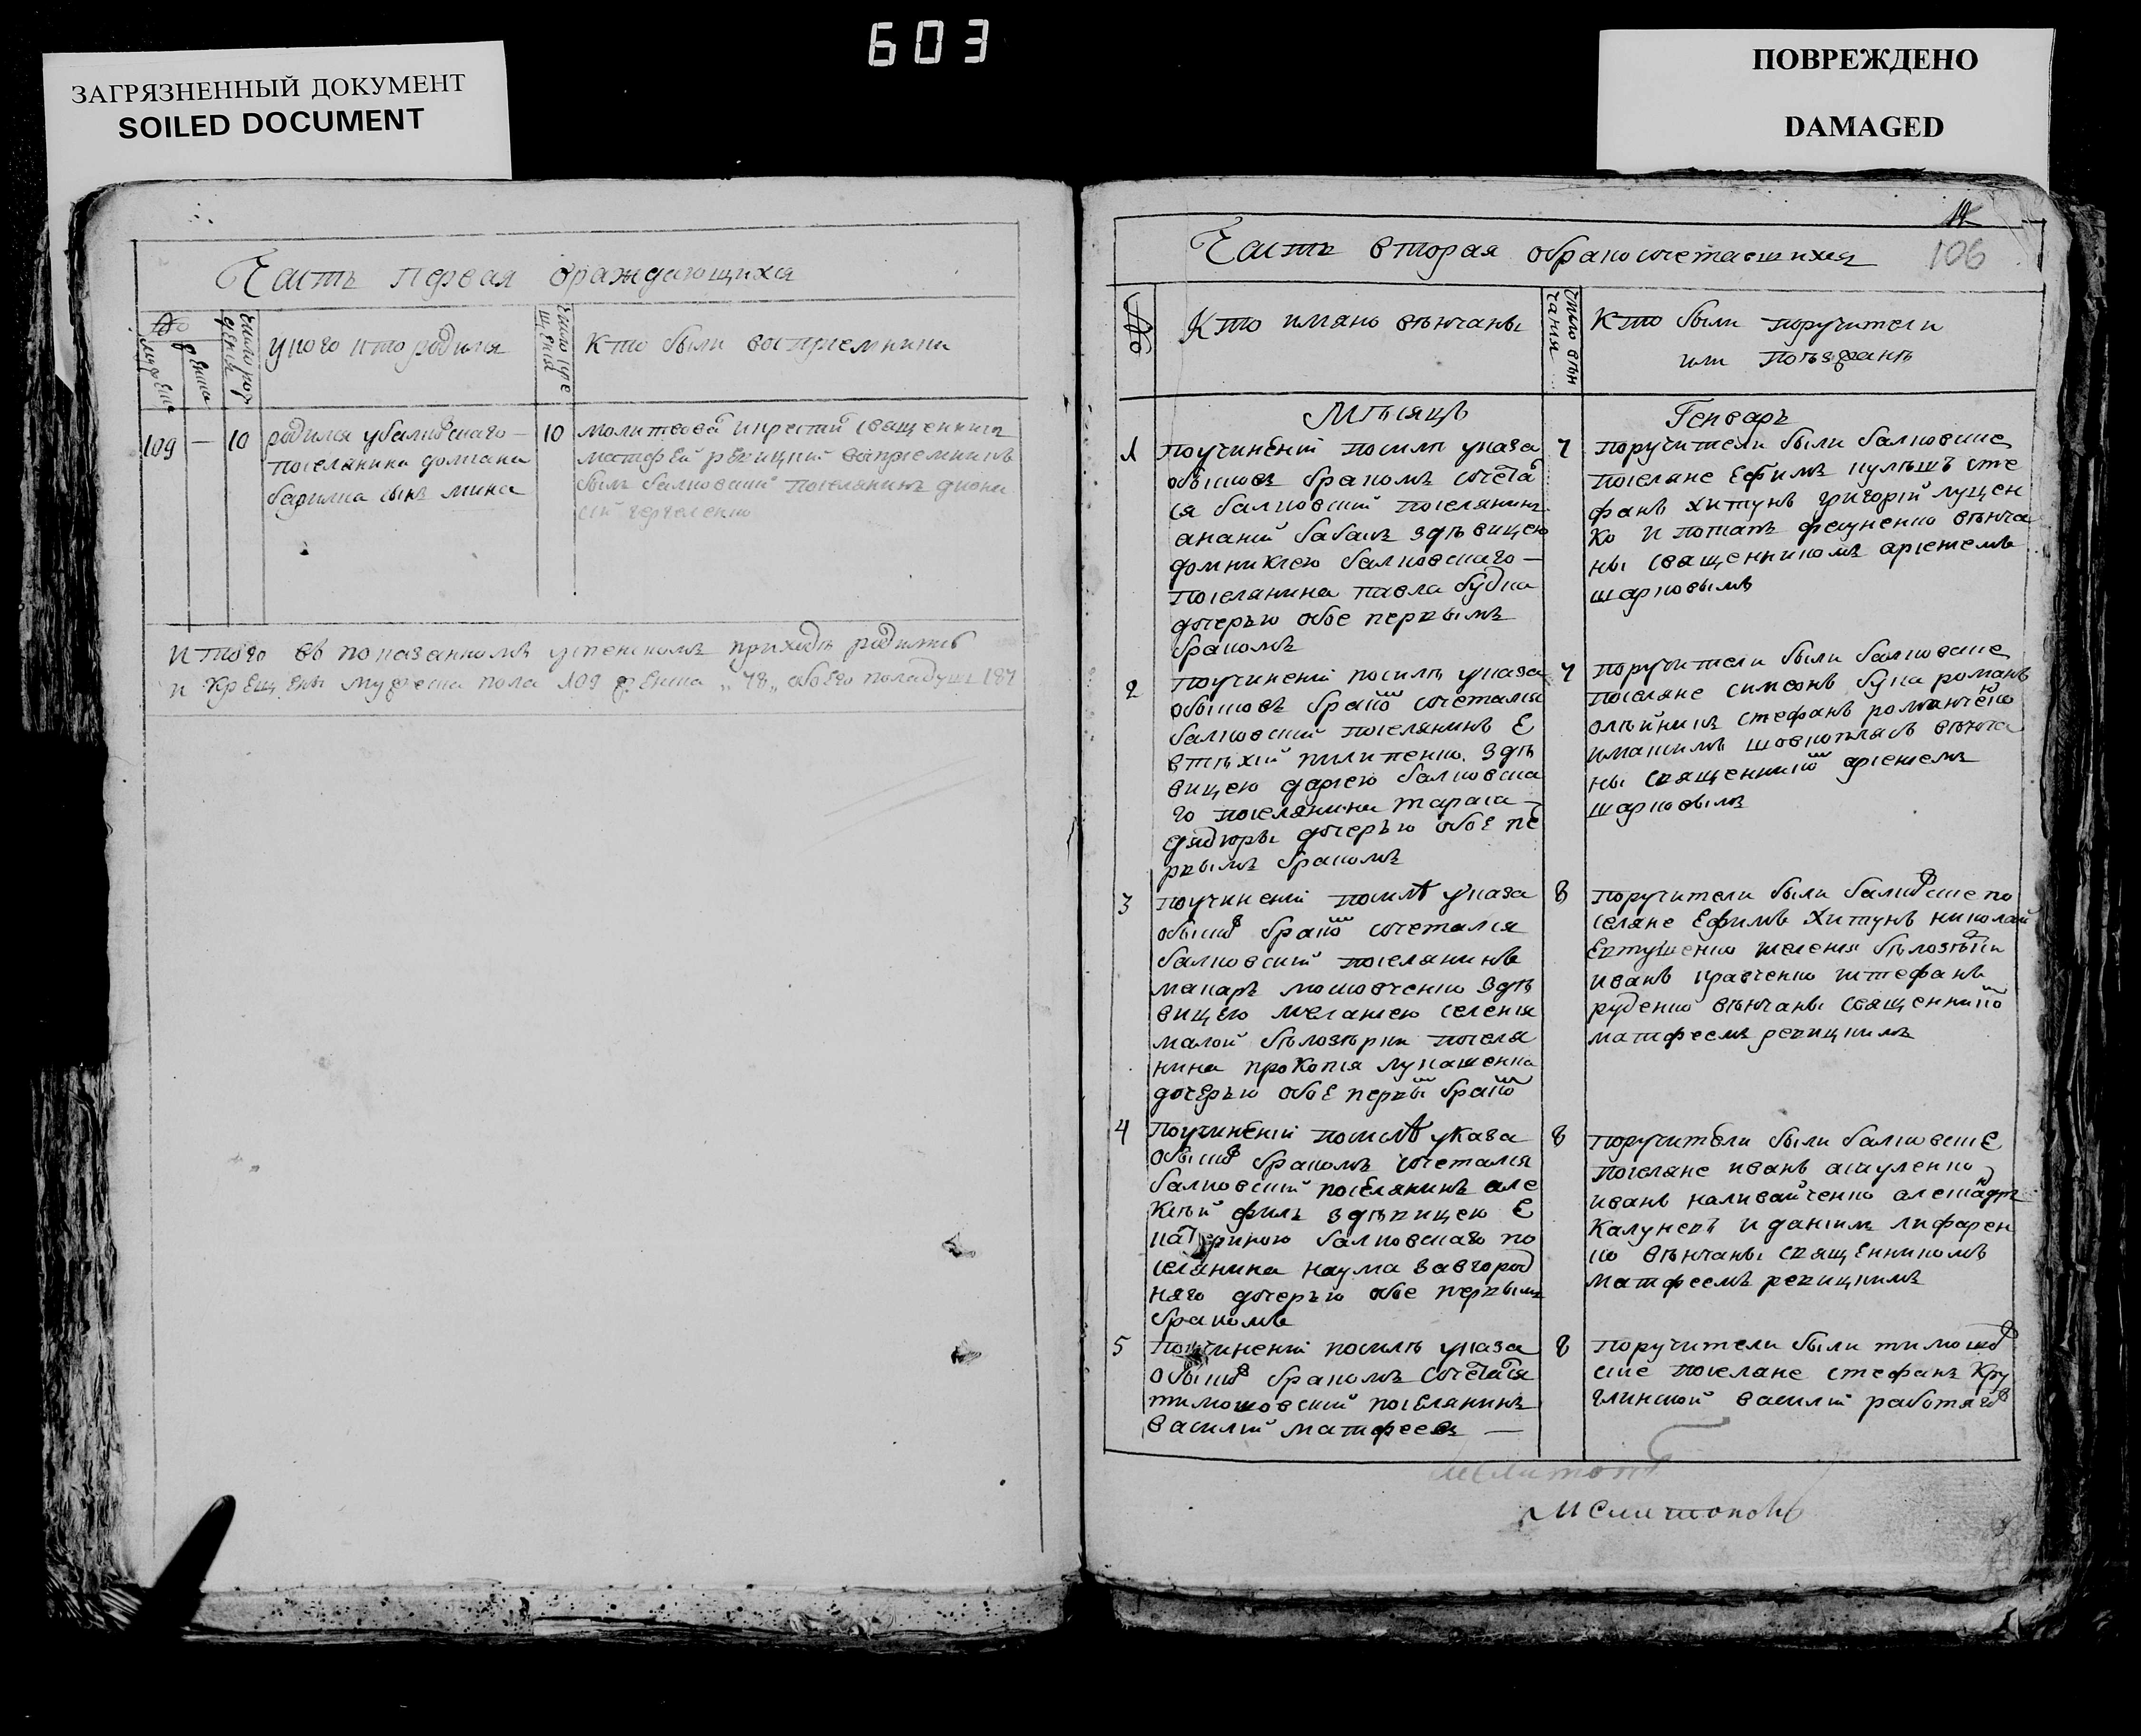 603
ЗАГРЯЗНЕННЫЙ ДОКУМЕНТ
SOILED DOCUMENT
ПОВРЕЖДЕНО
DAMAGED
Часть первая ораждающихся
у кого кто родился
кто были восприемники
109 — 10 родился у балковскаго
поселянина
сынъ мина
10 молитвовал и крестил священникъ
матфей рекицкий восприемникъ
былъ балковский поселянинъ
итого въ показанномъ успенскомъ приходе родилось
и крещены мужеска пола 109 женска „78„ обоего пола душъ 187
Часть вторая обракосочетавшихся
106
№
Кто имяно вѣнчаны
число вѣн
чания
Кто были поручители
или поѣзжанѣ
Мѣсяцъ Генваръ
1 по учинении посилѣ указа
обыскѣ бракомъ сочетал
ся балковский поселянинъ
ананий бабакъ здѣвицею
домникиею балковскаго —
поселянина павла будка
дочерью обое первымъ
бракомъ
7 поручители были балковские
поселяне ефимъ кулѣшъ сте
фанъ хитунъ григорий луцен
ко и потапъ федуненко вѣнча
ны священникомъ артемемъ
шарповымъ
2 по учинении посилѣ указа
обысковъ браком сочетался
балковский поселянинъ е
втѣхий пилипенко здѣ
вицею дариею балковска
го поселянина тараса —
дядюры дочерью обое пе
рвымъ бракомъ
7 поручители были балковские
поселяне симеонъ бука романъ
олѣйникъ стефанъ романченко
вѣнча
ны священником артемемъ
шарповымъ
3 по учинении посилѣ указа
обысковъ браком сочетался
балковский поселянинъ
макаръ мошовченко здѣ
вицею меланиею селения
малой бѣлозѣрки поселя
нина прокопия лукашенка
дочерью обое первым браком
8 поручители были балковские по
селяне ефимъ хитунъ николай
евтушенко селения бѣлозѣрки
иванъ кравченко и стефанъ
руденко вѣнчаны священником
матфеемъ рекицкимъ
4 по учинении посилѣ указа
обысковъ бракомъ сочетался
балковский поселянинъ але
ксѣй филь здѣвицею е
катериною балковскаго по
селянина наума завгород
няго дочерью обое первымъ
бракомъ
8 поручители были балковские
поселяне иванъ акуленко
иванъ наливайченко александръ
калуневъ и даниилъ лифарен
ко вѣнчаны священникомъ
матфеемъ рекицкимъ
5 по учинении посилѣ указа
обысковъ бракомъ сочетался
тимошовский поселянинъ
василий матфеевъ —
8 поручители были тимошов
ские поселане стефанъ кру
глинской василий работягов